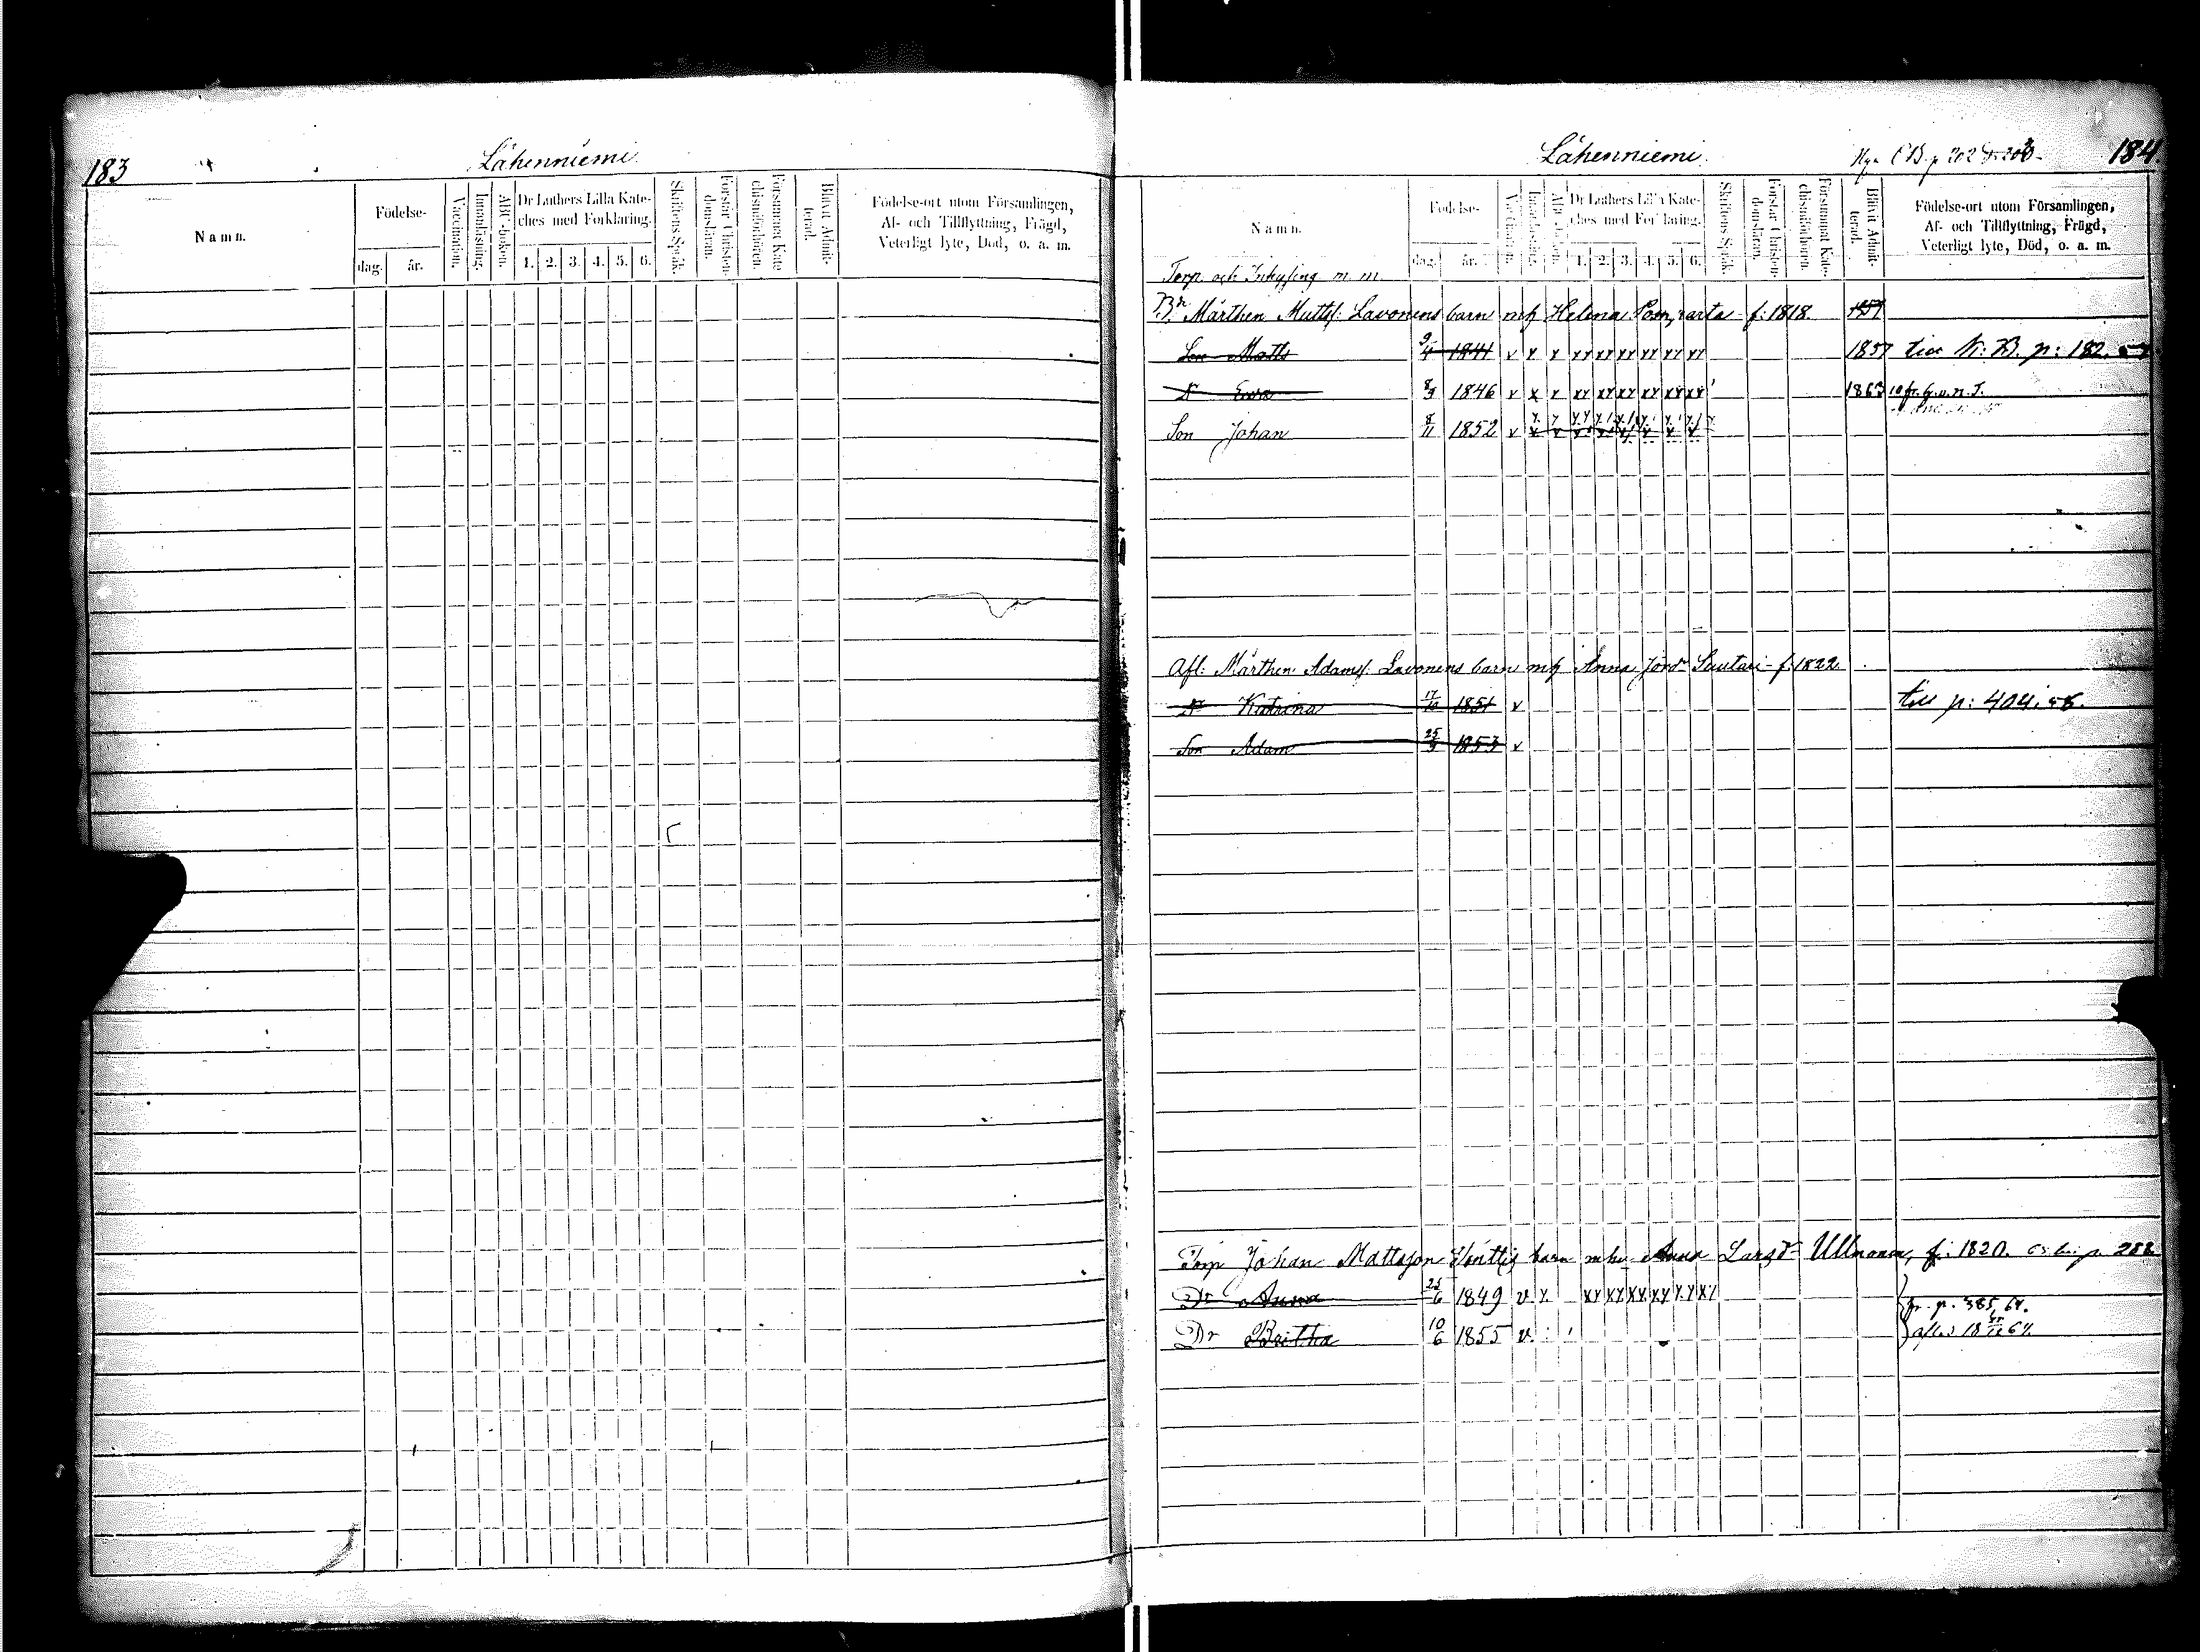 183
Lähenniemi
Namn.
Födelse-
dag. år.
Vaccination.
Innanläsning.
ABC-boken.
Dr Luthers Lilla Kate-
ches med Förklaring.
1. 2. 3. 4. 5. 6.
Skriftens Språk.
Förstår Christen-
domsläran.
Försummat Kate-
chismiförhören.
Blivit Admit-
terad.
Födelse-ort utom Församlingen,
Af- och Tillflyttning, Frägd,
Veterligt lyte, Död, o. a. m.
Lähenniemi
184.
Namn.
Födelse-
dag. år.
Dr Luthers Lilla Kate-
ches med Förklaring.
1. 2. 3. 4. 5. 6.
Skriftens Språk.
Förstår Christen-
domsläran.
Försummat Kate-
chismiförhören.
Blivit Admit-
terad.
Födelse-ort utom Församlingen,
Af- och Tillflyttning, Frägd,
Veterligt lyte, Död, o. a. m.
Torp och Inhysing m m
Bn Mårthen Matts. Lavonens barn mh Helena f: 1818.
Son Matts 9/4 1841 v x x xx xx xx xx xx xx 1857 p: 182.
Dr Ewa 8/9 1846 v x x xx xx xx xx xx xx 1863
Son Johan 8/11 1852 v x x
Afl: Mårthen Adams. Lavonens barn mh Anna Jörsdr Sautari f: 1822.
Dr Katrina 17/10 1851 v till p: 404. 56.
Son Adam 25/9 1853 v
Torp Johan Mattsson barn Anna Larsdr Ullmanen, f: 1820. p. 282
Dr Anna 25/6 1849 v x xx xx xx xx xx xx fr. p. 385, 64.
Dr Britha 10/6 1855 v.